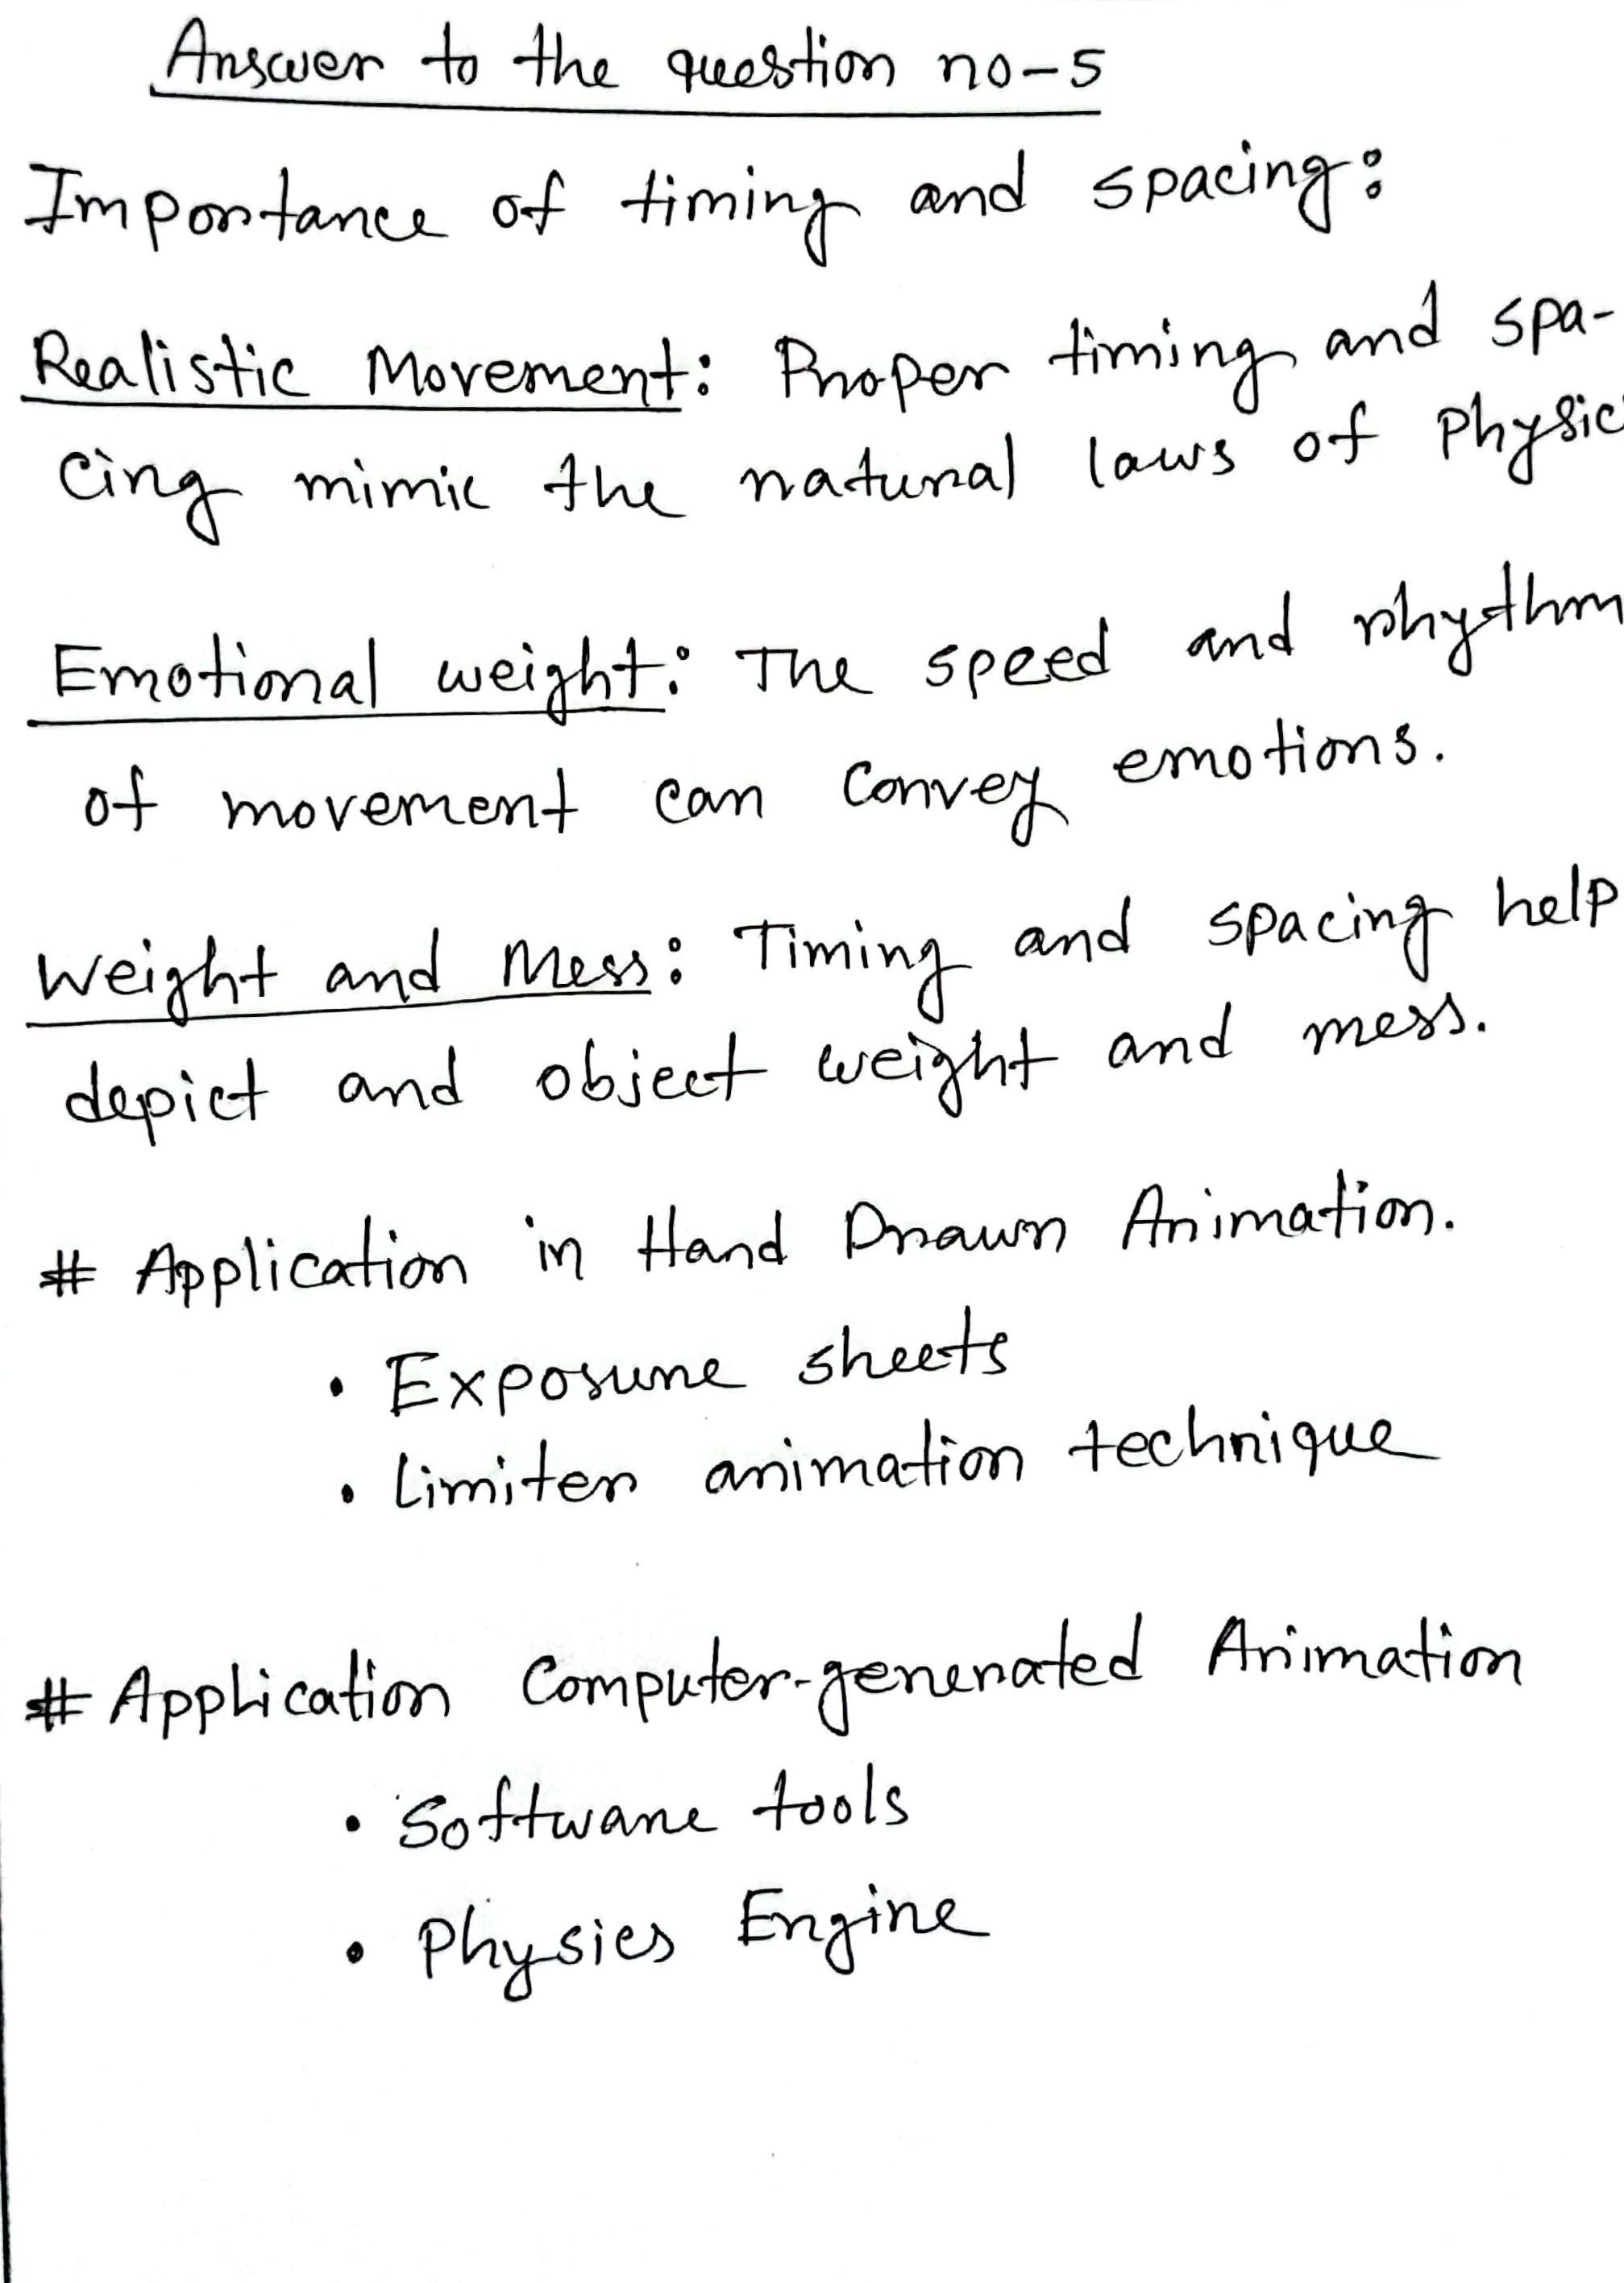 Answer to the question no-5
Importance of timing and spacing:
Realistic Movement: Proper timing and spa-
cing mimic the natural laws of physic
Emotional weight: The speed and rhythm
of movement can convey emotions.
Weight and Mess: Timing and spacing help
depict and object weight and mess.
# Application in Hand Drawn Animation.
• Exposure sheets
• Limiter animation technique
# Application Computer-generated Animation
• Software tools
• Physics Engine